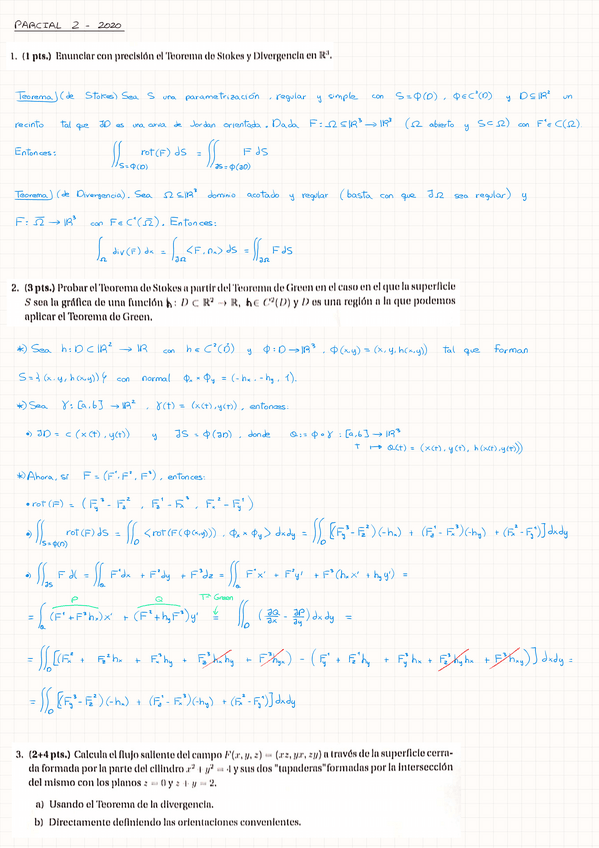 PARCIAL 2 - 2020
1. (1 pts.) Enunciar con precisión el Teorema de Stokes y Divergencia en ℝ³.
Teorema) (de Stokes) Sea S una parametrización, regular y simple con S=Φ(D), Φ∈C²(D) y D⊆ℝ² un
recinto tal que ∂D es una curva de Jordan orientada. Dada F: Ω⊆ℝ³→ℝ³ (Ω abierto y S⊂Ω) con F∈C¹(Ω)
Entonces: ∬_{S=Φ(D)} rot(F) dS = ∬_{∂S=Φ(∂D)} F dS
Teorema) (de Divergencia). Sea Ω⊆ℝ³ dominio acotado y regular (basta con que ∂Ω sea regular) y
F: Ω̅→ℝ³ con F∈C¹(Ω̅). Entonces:
∫_Ω div(F) dx = ∫_{∂Ω} <F, n_x> dS = ∬_{∂Ω} F dS
2. (3 pts.) Probar el Teorema de Stokes a partir del Teorema de Green en el caso en el que la superficie
S sea la gráfica de una función h: D ⊂ ℝ² → ℝ, h ∈ C²(D) y D es una región a la que podemos
aplicar el Teorema de Green.
*) Sea h: D⊂ℝ² → ℝ con h∈C²(D) y Φ: D→ℝ³, Φ(x,y) = (x, y, h(x,y)) tal que forman
S={(x, y, h(x,y))} con normal Φx × Φy = (-hx, -hy, 1).
*) Sea γ: [a,b] → ℝ², γ(t) = (x(t), y(t)), entonces:
•) ∂D = c (x(t), y(t)) y ∂S = Φ(∂D), donde Q:= Φ∘γ : [a,b] → ℝ³
t ↦ Q(t) = (x(t), y(t), h(x(t), y(t)))
*) Ahora, si F = (F¹, F², F³), entonces:
• rot(F) = (Fy³ - Fz², Fz¹ - Fx³, Fx² - Fy¹)
•) ∬_{S=Φ(D)} rot(F) dS = ∬_D <rot(F(Φ(x,y))), Φx × Φy> dxdy = ∬_D [(Fy³ - Fz²)(-hx) + (Fz¹ - Fx³)(-hy) + (Fx² - Fy¹)] dxdy
•) ∬_{∂S} F dl = ∬_Q F¹dx + F²dy + F³dz = ∬_Q F¹x' + F²y' + F³(hx x' + hy y') =
P Q Tª Green
= ∫_Q (F¹ + F³hx)x' + (F² + hyF³)y' = ∬_D (∂Q/∂x - ∂P/∂y) dxdy =
= ∬_D [(Fx² + Fz²hx + Fx³hy + Fz³hxhy + F³hyx) - (Fy¹ + Fz¹hy + Fy³hx + Fz³hyhx + F³hxy)] dxdy =
= ∬_D [(Fy³ - Fz²)(-hx) + (Fz¹ - Fx³)(-hy) + (Fx² - Fy¹)] dxdy
3. (2+4 pts.) Calcula el flujo saliente del campo F(x, y, z) = (xz, yx, zy) a través de la superficie cerra-
da formada por la parte del cilindro x² + y² = 4 y sus dos "tapaderas" formadas por la intersección
del mismo con los planos z = 0 y z + y = 2.
a) Usando el Teorema de la divergencia.
b) Directamente definiendo las orientaciones convenientes.